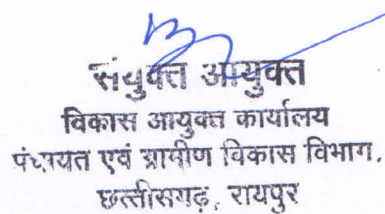 संयुक्त आयुक्त
विकास आयुक्त कार्यालय
पंचायत एवं ग्रामीण विकास विभाग,
छत्तीसगढ़, रायपुर